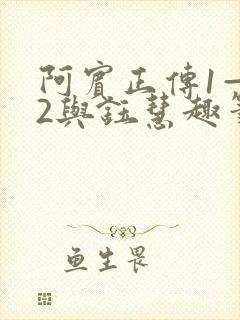 阿賓正傳1—
2與鈺慧趣
鱼生畏